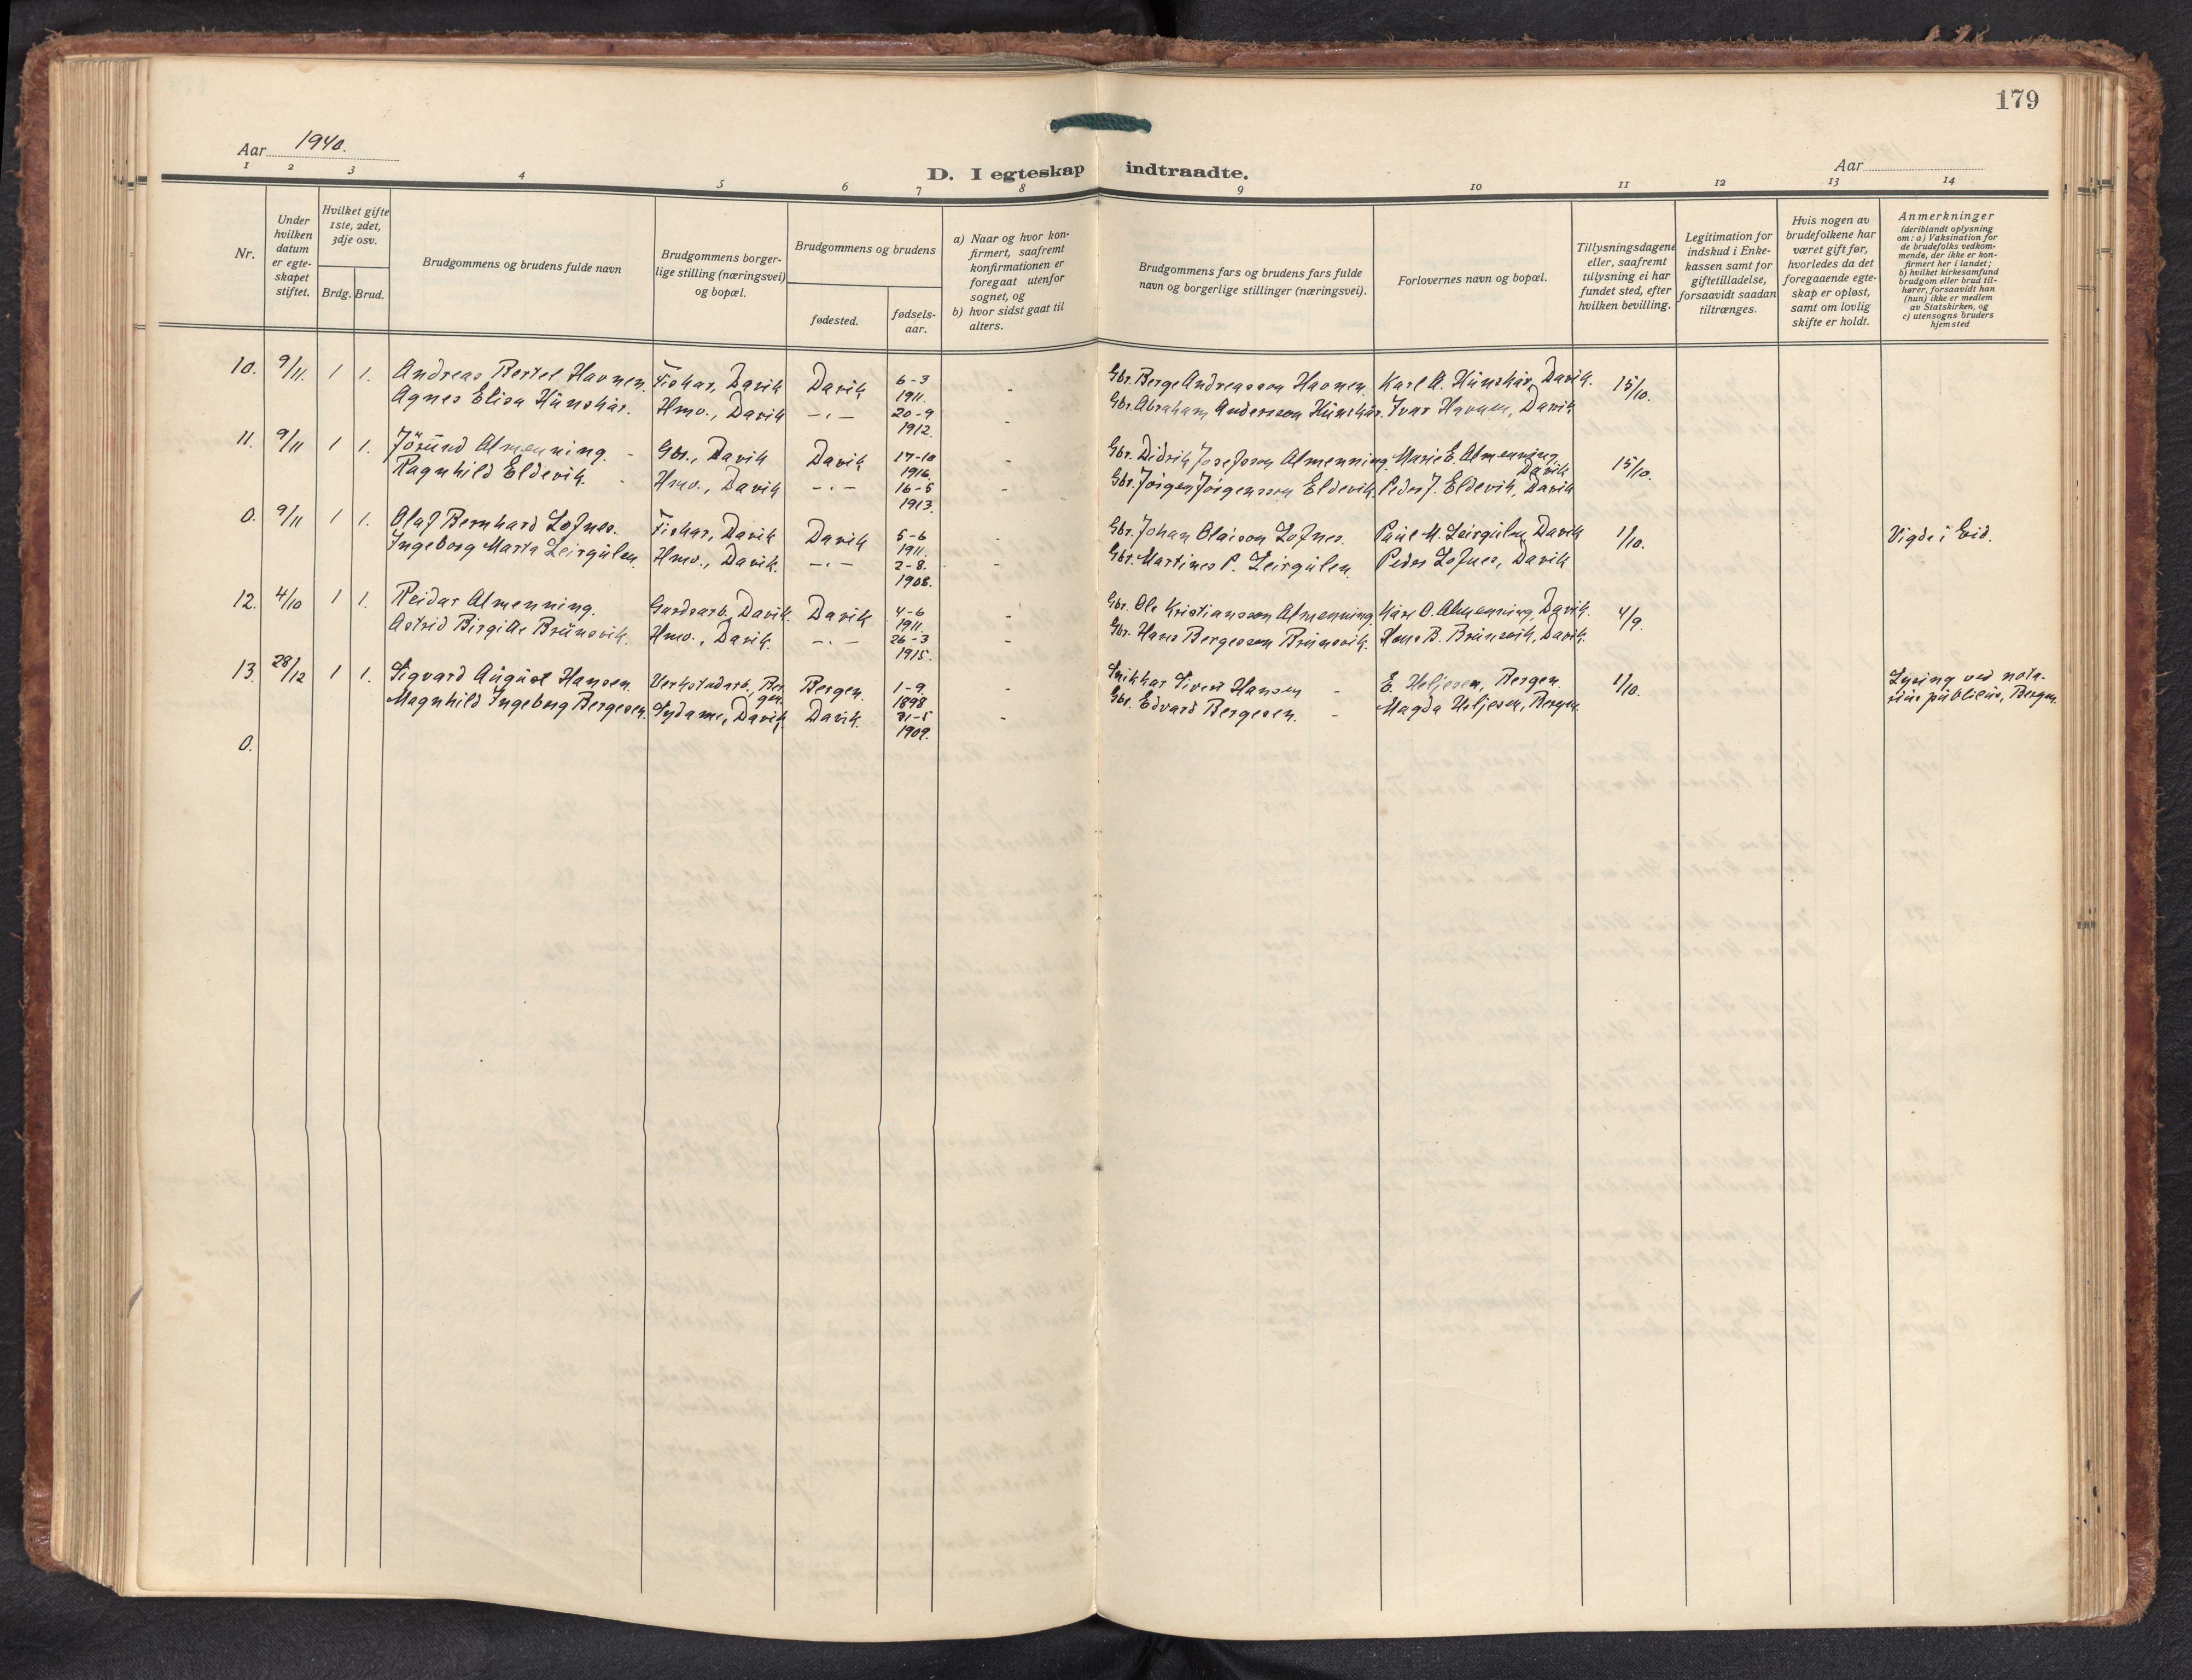 179
Aar 1940.
Aar
D. I egteskap indtraadte.
1 2 3 4 5 6 7 8 9 10 11 12 13 14
Nr.
Under hvilken datum er egte-skapet stiftet.
Hvilket gifte 1ste, 2det, 3dje osv.
Brdg. Brud.
Brudgommens og brudens fulde navn
Brudgommens borger-lige stilling (næringsvei) og bopæl.
Brudgommens og brudens
fødested.
fødsels-aar.
a) Naar og hvor kon-firmert, saafremt konfirmationen er foregaat utenfor sognet, og
b) hvor sidst gaat til alters.
Brudgommens fars og brudens fars fulde navn og borgerlige stillinger (næringsvei).
Forlovernes navn og bopæl.
Tillysningsdagene eller, saafremt tillysning ei har fundet sted, efter hvilken bevilling.
Legitimation for indskud i Enke-kassen samt for giftetilladelse, forsaavidt saadan tiltrænges.
Hvis nogen av brudefolkene har været gift før, hvorledes da det foregaaende egte-skap er opløst, samt om lovlig skifte er holdt.
Anmerkninger (deriblandt oplysning om: a) Vaksination for de brudefolks vedkom-mende, der ikke er kon-firmert her i landet; b) hvilket kirkesamfund brudgom eller brud til-hører, forsaavidt han (hun) ikke er medlem av Statskirken, og c) utensogns bruders hjemsted
10. 9/11. 1 1. Andreas Bertel Havnen. Fiskar, Davik Davik 6-3 1911. - Gbr. Berge Andreasson Havnen. Karl A. Hünskår, Davik. 15/10.
Agnes Elisa Hünskår. Hmo., Davik -"- 20-9 1912. - Gbr. Abraham Anderson Hünskår. Ivar Havnen, Davik
11. 9/11 1 1. Jörund Almenning. - Gbr., Davik Davik 17-10 1916. - Gbr. Didrik Josefson Almenning. Marie E. Almenning, Davik 15/10.
Ragnhild Eldevik. - Hmo., Davik -"- 16-5 1913. - Gbr. Jörgen Jörgensson Eldevik. Peder J. Eldevik, Davik
0. 9/11 1 1. Olaf Bernhard Lofnes. Fiskar, Davik Davik 5-6 1911. - Gbr. Johan Olaison Lofnes. Paul M. Leirgulen, Davik 1/10. Vigde i Eid.
Ingeborg Marta Leirgulen. Hmo., Davik. -"- 2-8. 1908. - Gbr. Martines P. Leirgulen. Peder Lofnes, Davik
12. 4/10 1 1. Reidar Almenning. Gardsarb., Davik. Davik 4-6 1911. - Gbr. Ole Kristiansson Almenning. Kåre O. Almenning, Davik. 4/9.
Astrid Birgitte Brünsvik. Hmo., Davik. -"- 26-3 1915. - Gbr. Hans Bergesson Brünsvik. Hans B. Brünsvik, Davik.
13. 28/12 1 1. Sigvard August Hansen. Verkstadarb., Bergen. Bergen. 1-9. 1898 - Snikkar Sivert Hansen - E. Heljesen, Bergen. 1/10. Lysing ved nota-rius publicus, Bergen.
Magnhild Ingeborg Bergesen. Sydame, Davik Davik. 31-5 1909. - Gbr. Edvard Bergesen. - Magda Heljesen, Bergen.
0.